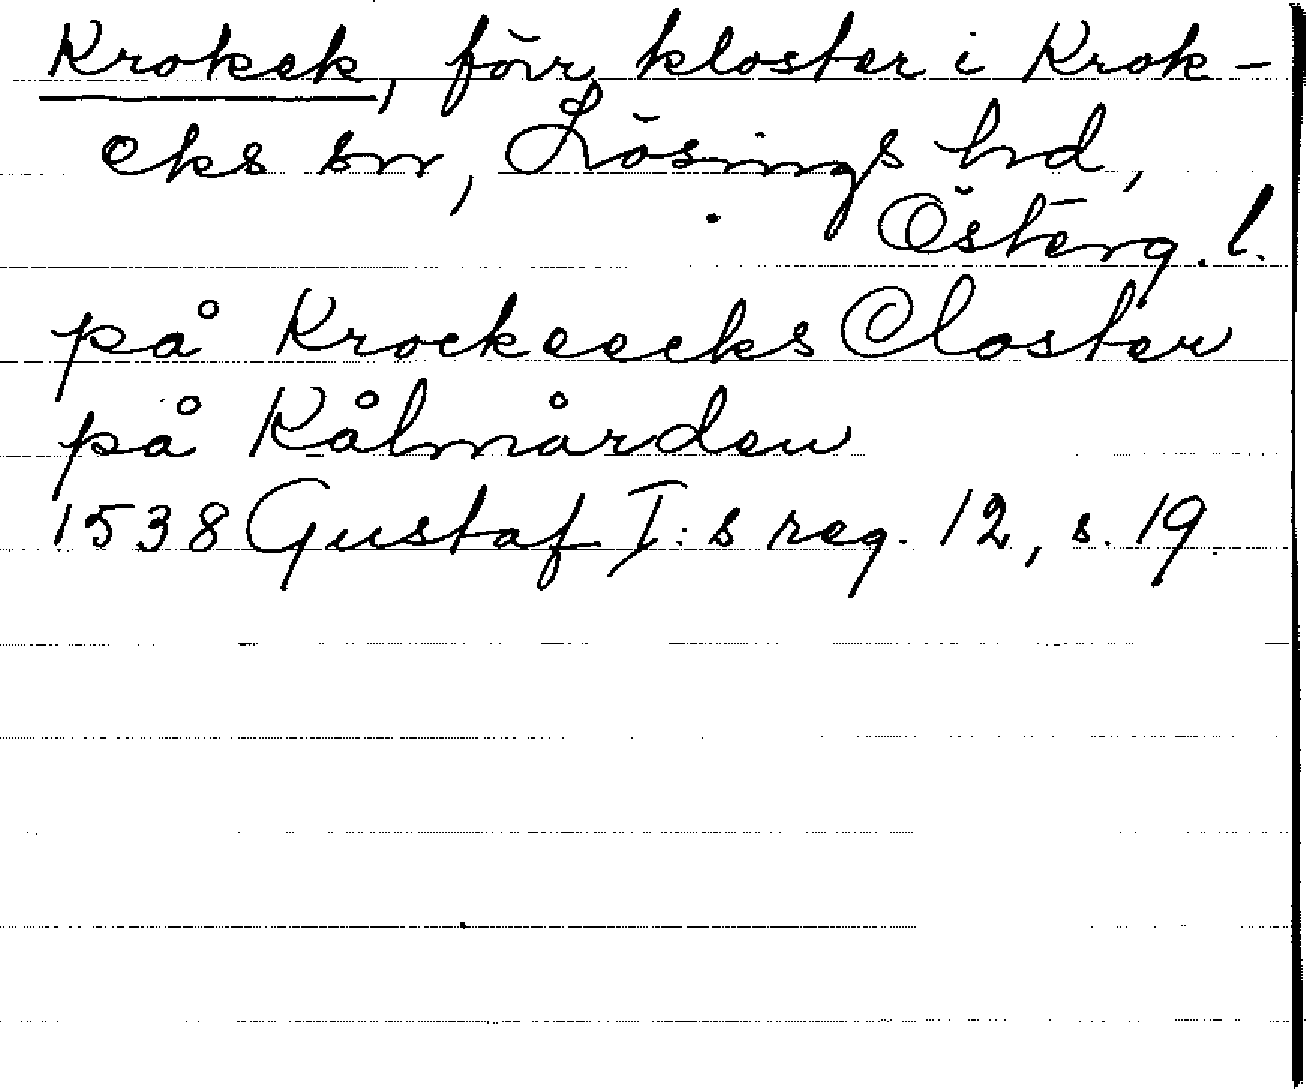 Krokek, förr kloster i Krok-
eks sn, Lösings hd,
Österg. l.
på Krockeecks Closter
på Kålmården
1538 Gustaf I:s reg. 12, s. 19.